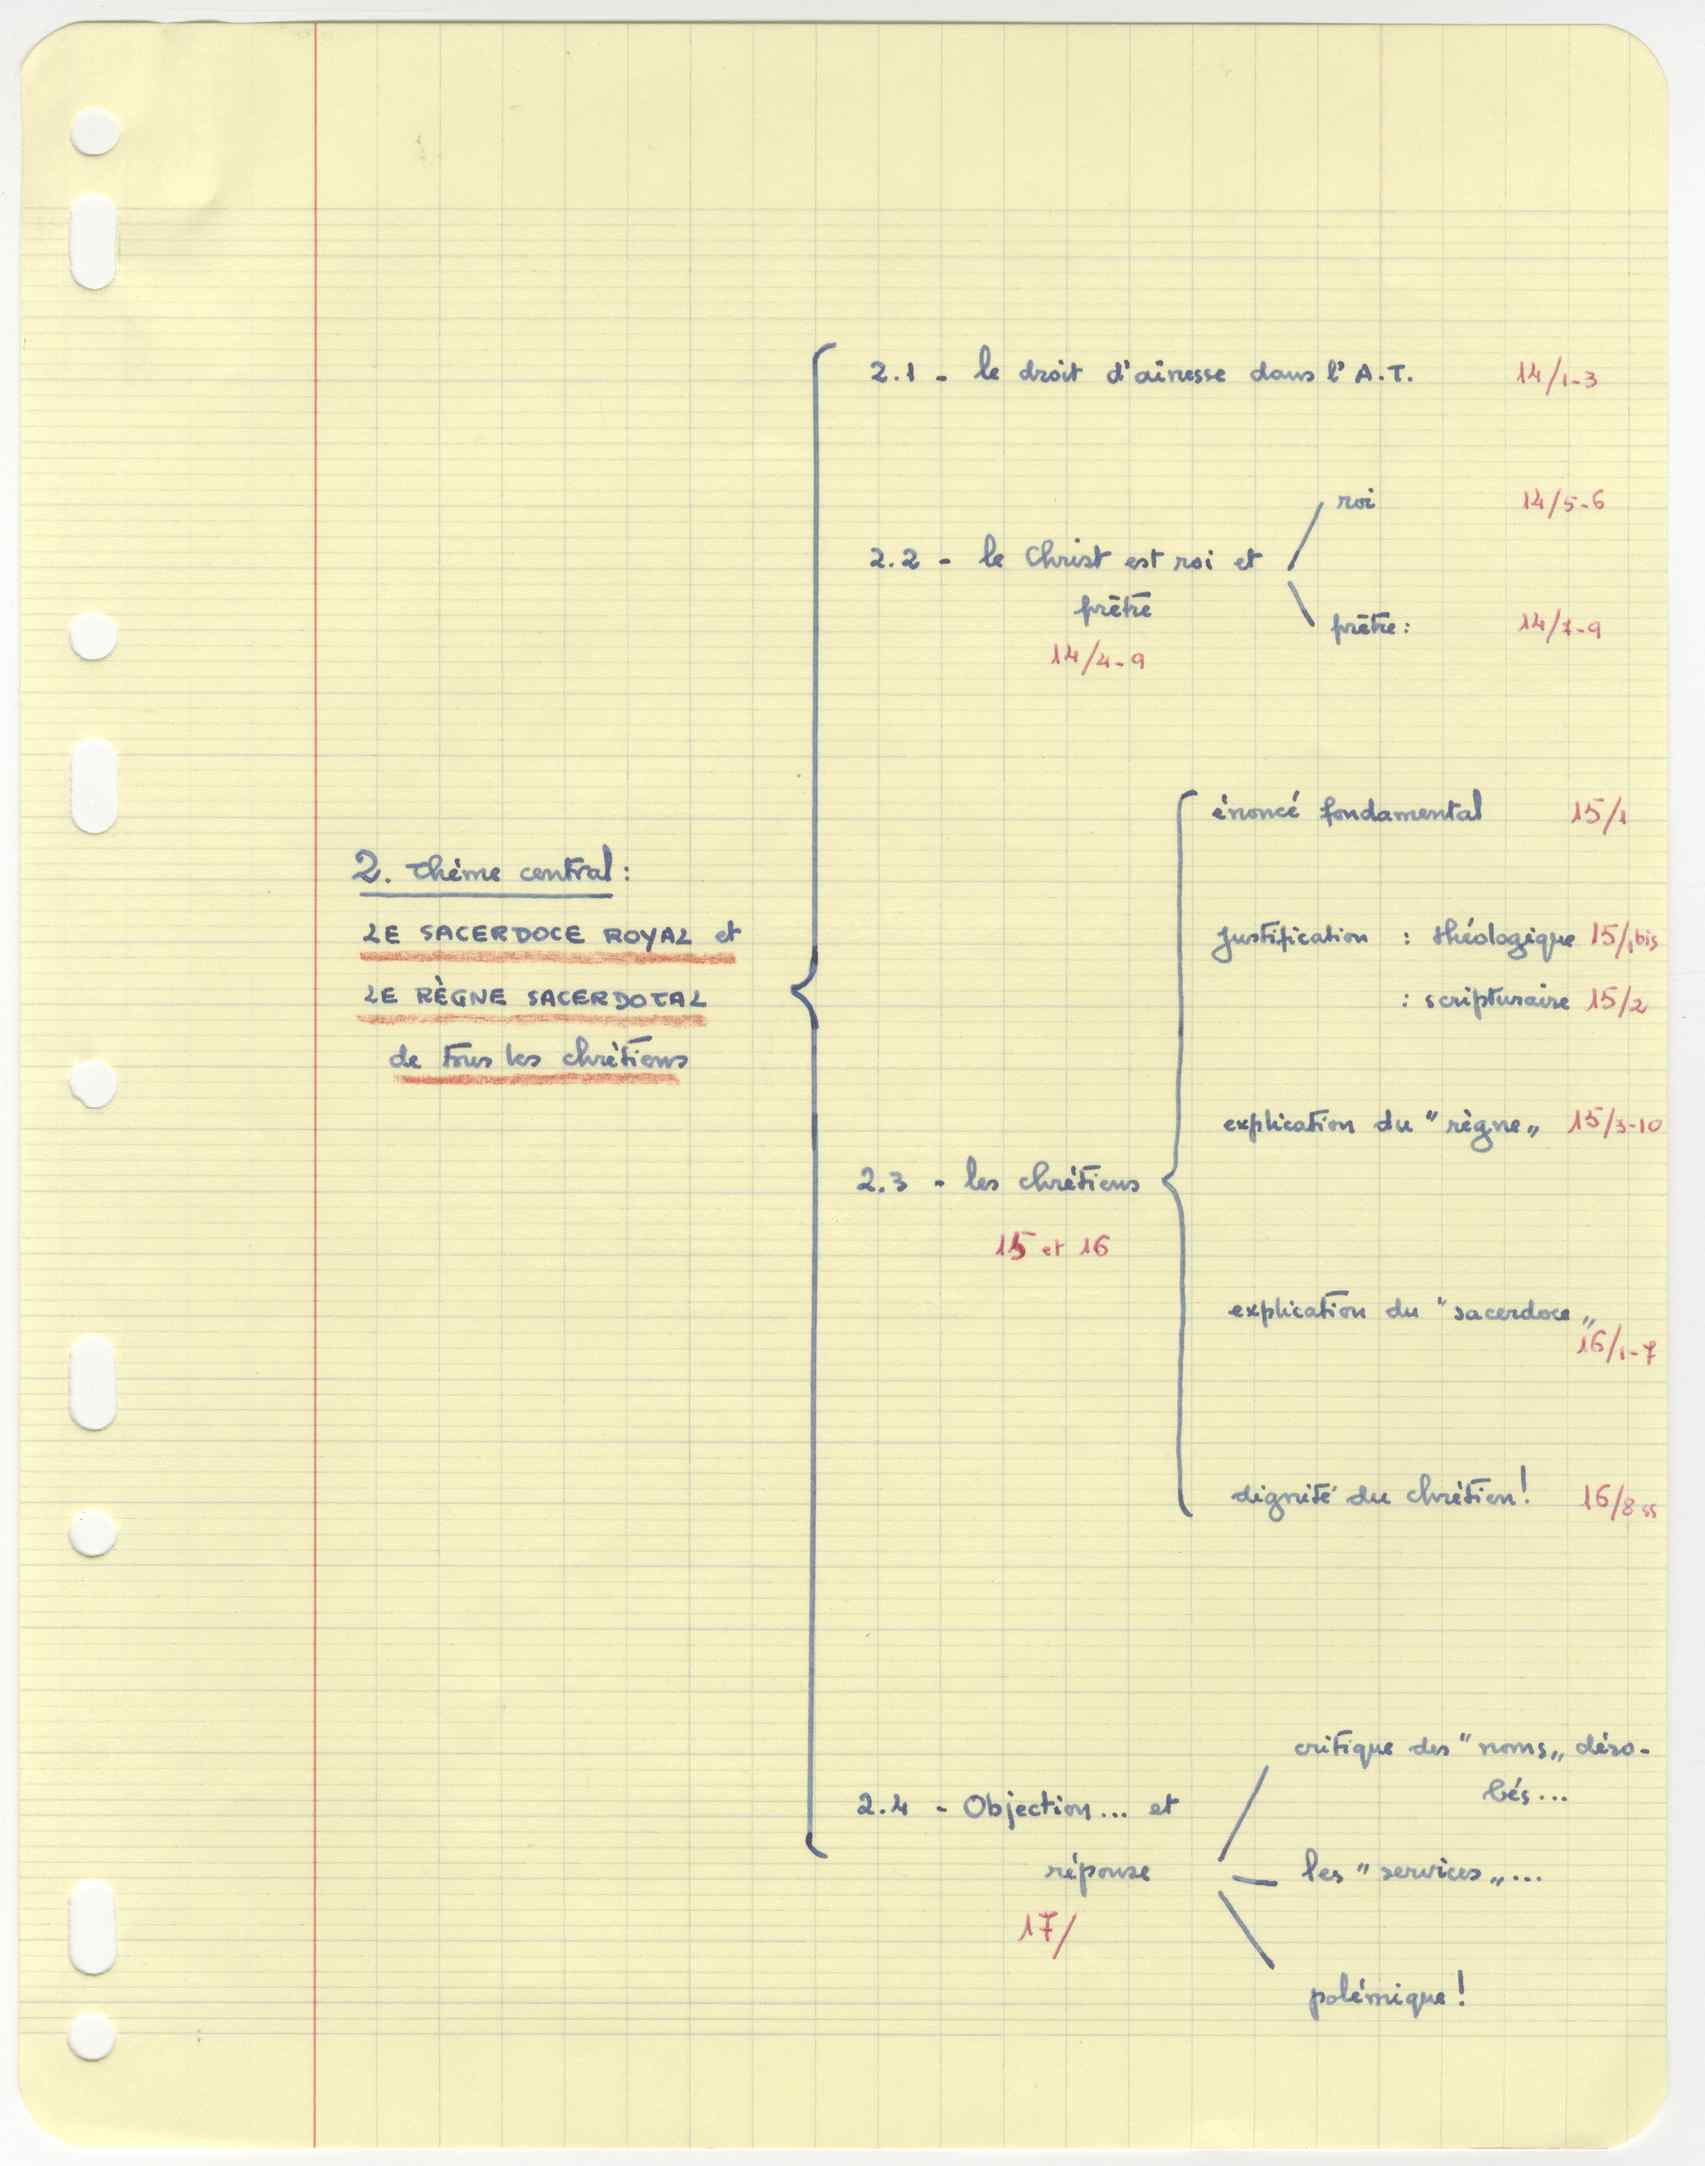 2.1 - le droit d'aînesse dans l'A.T. 14/1-3
roi 14/5-6
2.2 - le Christ est roi et
prêtre
prêtre : 14/7-9
14/4-9
énoncé fondamental 15/1
2. Thème central :
LE SACERDOCE ROYAL et
LE RÈGNE SACERDOTAL
de tous les chrétiens
justification : théologique 15/1bis
: scripturaire 15/2
explication du "règne" 15/3-10
2.3 - les chrétiens
15 et 16
explication du "sacerdoce"
16/1-7
dignité du chrétien ! 16/8 ss
critique des "noms" déro-
bés...
2.4 - Objection... et
réponse
les "services"...
17/
polémique !